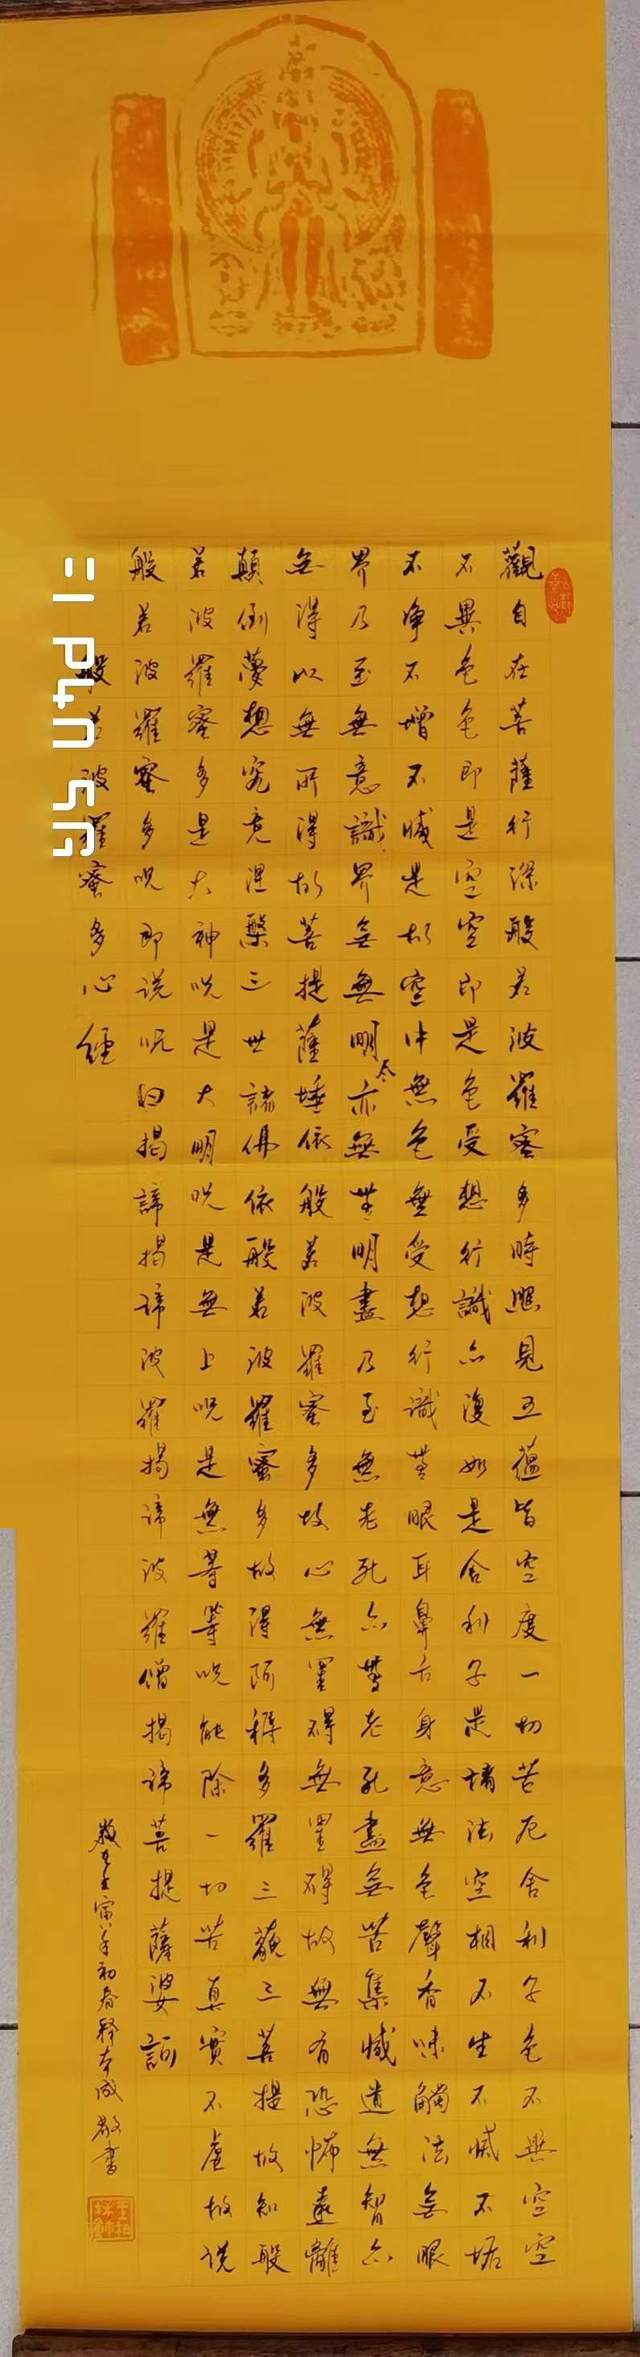 觀自在菩薩行深般若波羅蜜多時照見五蘊皆空度一切苦厄舍利子色不異空空
不異色色即是空空即是色受想行識亦復如是舍利子是諸法空相不生不滅不垢
不淨不增不減是故空中無色無受想行識無眼耳鼻舌身意無色聲香味觸法無眼
界乃至無意識界無無明亦無無明盡乃至無老死亦無老死盡無苦集滅道無智亦
無得以無所得故菩提薩埵依般若波羅蜜多故心無罣礙無罣礙故無有恐怖遠離
顛倒夢想究竟涅槃三世諸佛依般若波羅蜜多故得阿耨多羅三藐三菩提故知般
若波羅蜜多是大神咒是大明咒是無上咒是無等等咒能除一切苦真實不虛故說
般若波羅蜜多咒即說咒曰揭諦揭諦波羅揭諦波羅僧揭諦菩提薩婆訶
般若波羅蜜多心經
壬寅年初春释本成敬書